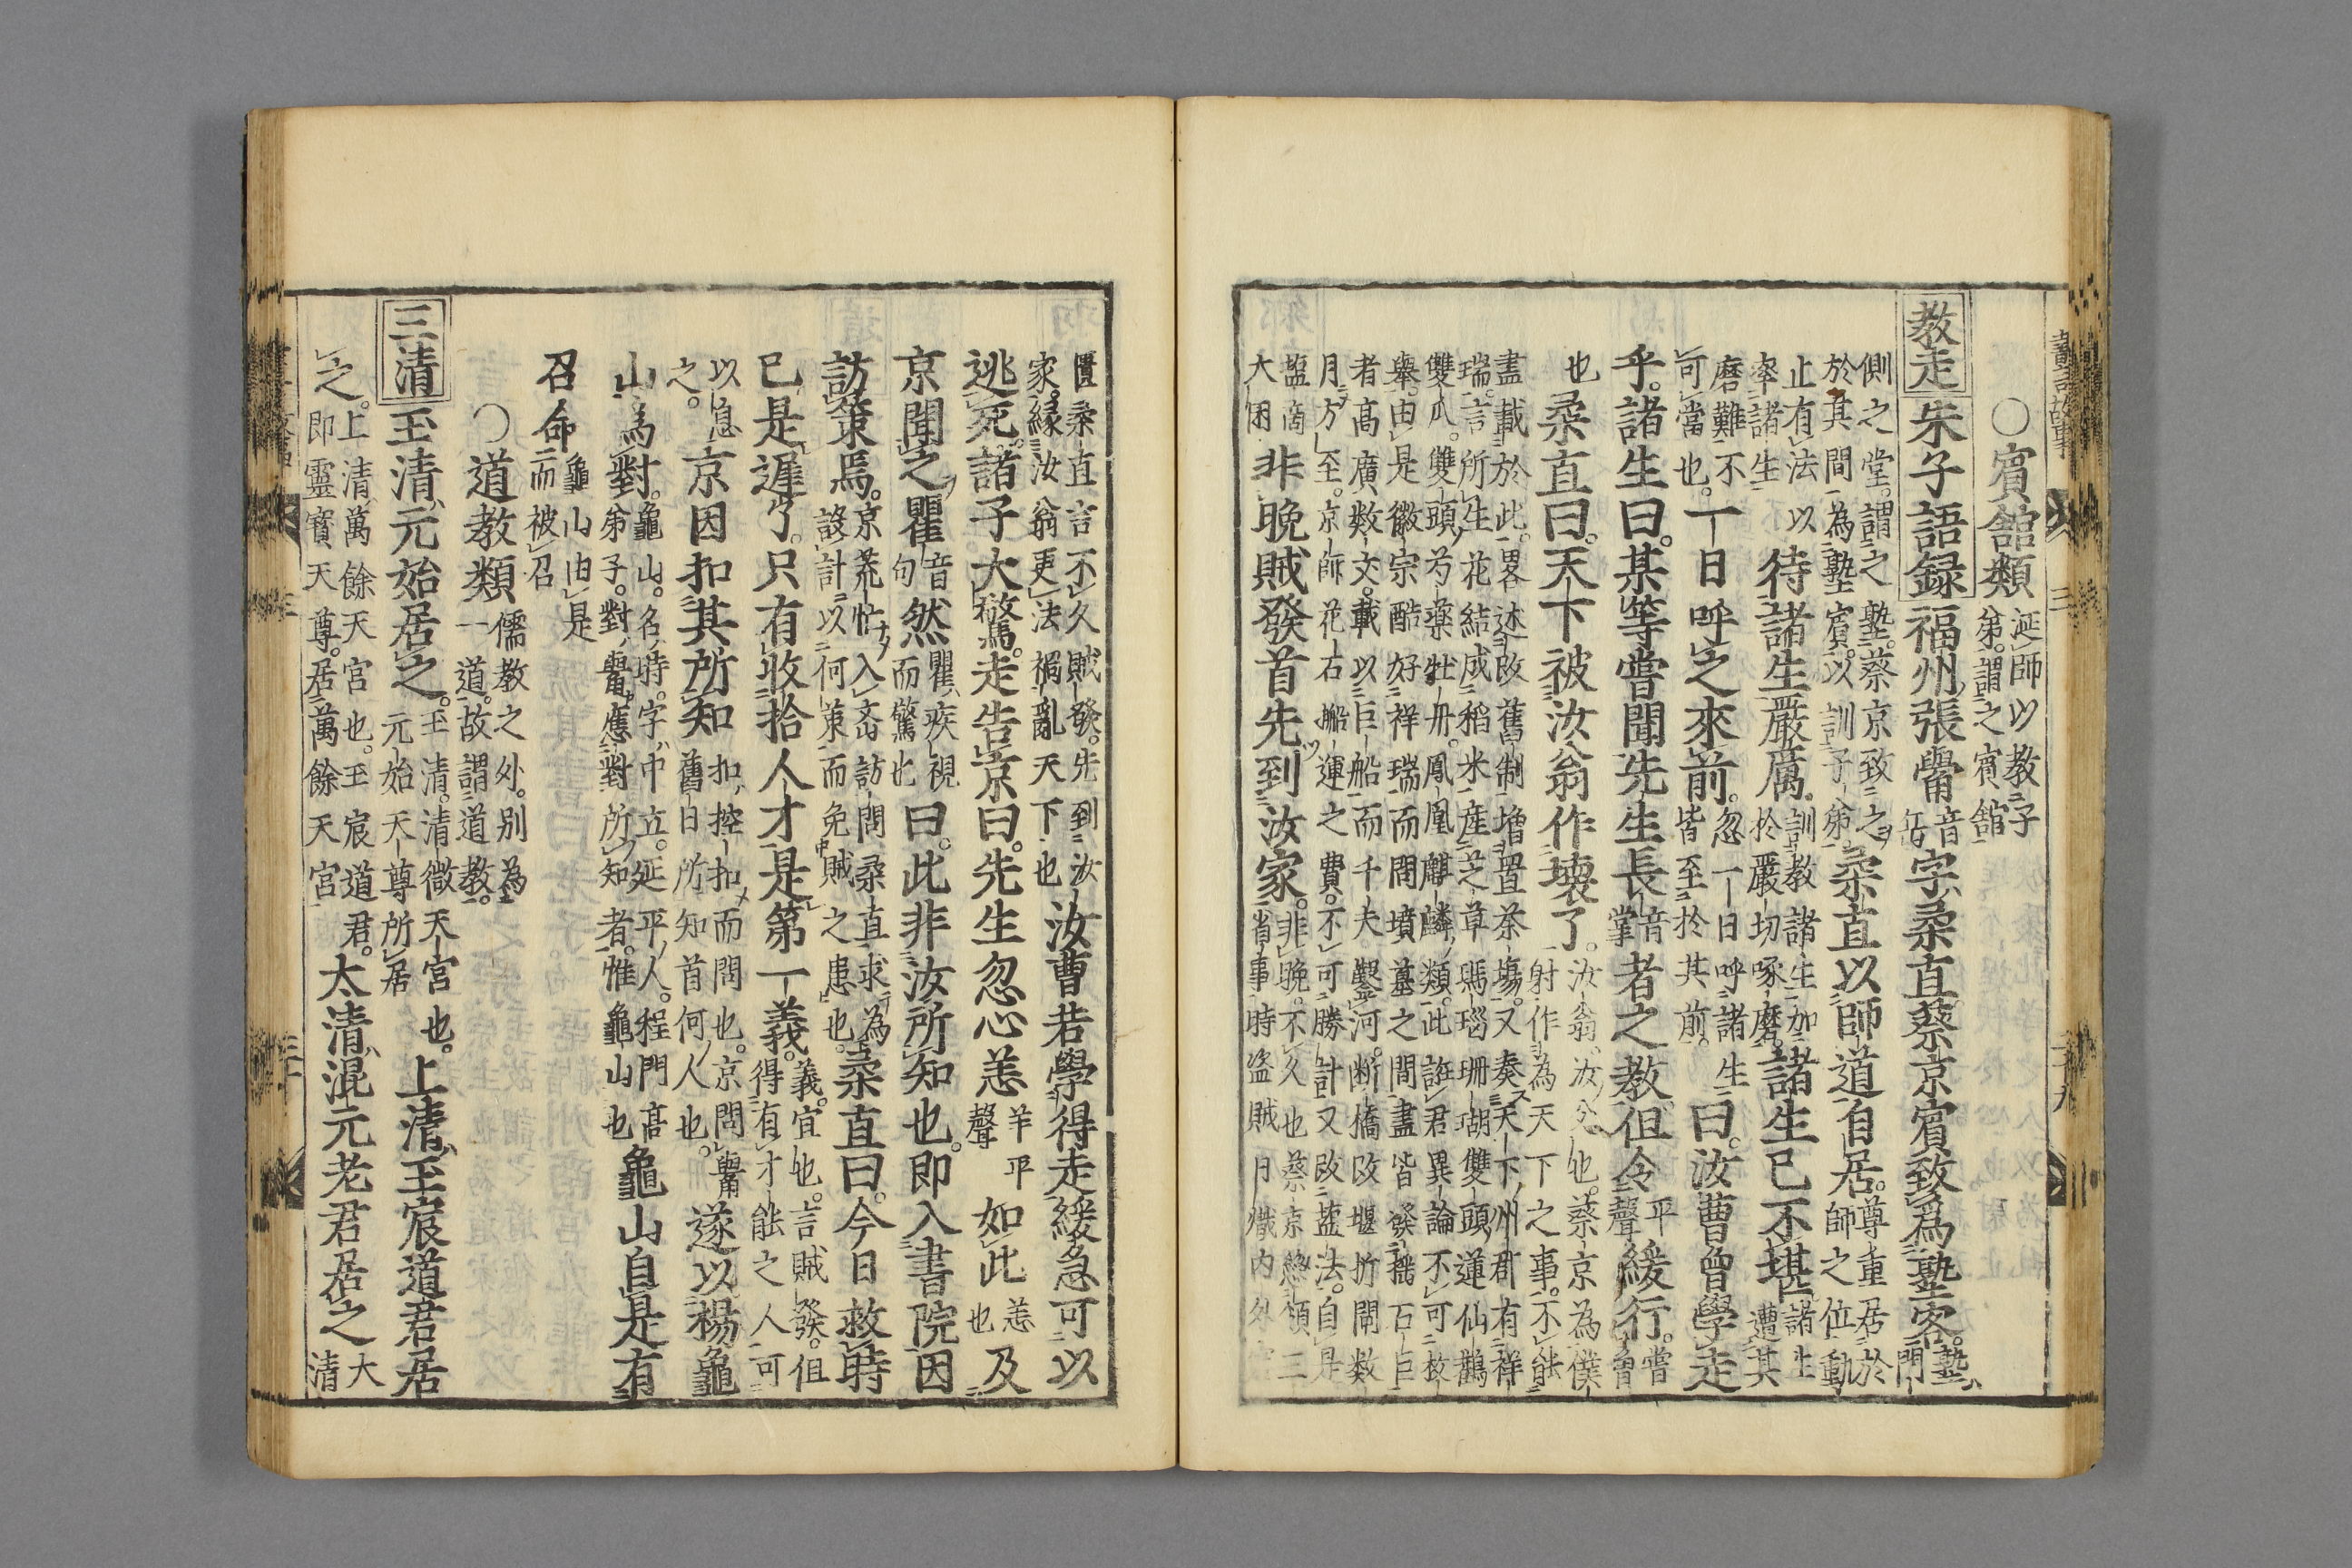 ○賓舘類延師以教子弟謂之賓舘
教走 朱子語録 福州張觷音字柔直蔡京賓致為塾客塾門
側之堂謂之塾蔡京致之於其間為塾賓以訓子弟柔直以師道自居尊重居於師之位動
止有法以率諸生待諸生嚴厲訓教諸生加於嚴切啄磨諸生已不堪諸生遭其
磨難不可當也一日呼之來前忽一日呼諸生皆至於其前曰汝曹曾學走
乎諸生曰某等嘗聞先生長音掌者之教但令平聲緩行嘗曾
也柔直曰天下被汝翁作壊了汝翁汝父也蔡京為僕射作為天下之事不能
盡載於此畧述改舊制増置茶塲又奏天下州郡有祥
瑞言所生花結成稻米産芝草瑪瑙珊瑚雙頭蓮仙鵲
雙瓜雙頭芍藥牡丹鳳凰麒麟類此誑君異論不可枚
舉由是徽宗酷好祥瑞而問墳墓之間盡皆發掘石巨
者高廣數丈載以巨船而千夫鑿河断橋改堰折閘数
月方至京師花石船運之費不可勝計又改盐法自是
盬商大困非晩賊發首先到汝家非晩不久也蔡京領二省事時盗賊日熾内外
匱柔直言不久賊發先到汝家縁汝翁更法禍亂天下也汝曹若學得走緩急可以
逃死諸子大驚走告京曰先生忽心恙羊平聲如此恙也及
京聞之瞿音句然瞿疾視而驚也曰此非汝所知也即入書院因
訪策焉京荒忙入斎訪問柔直求為設計以何策而免賊之患也柔直曰今日救時
已是遲了只有收拾人才是第一義義宜也言賊發但得有才能之人可
以息之京因扣其所知扣控扣而問也京問觷舊日所知首何人也遂以楊龜
山為對龜山名時字中立延平人程門高弟子對觷應對所知者惟龜山也龜山自是有
召命龜山由是而被召
○道教類儒教之外別為一道故謂道教
三清 玉清元始居之玉清清微天宮也元始天尊所居上清玉宸道君居
之上清萬餘天宮也玉宸道君即靈寳天尊居萬餘天宮太清混元老君居之大清